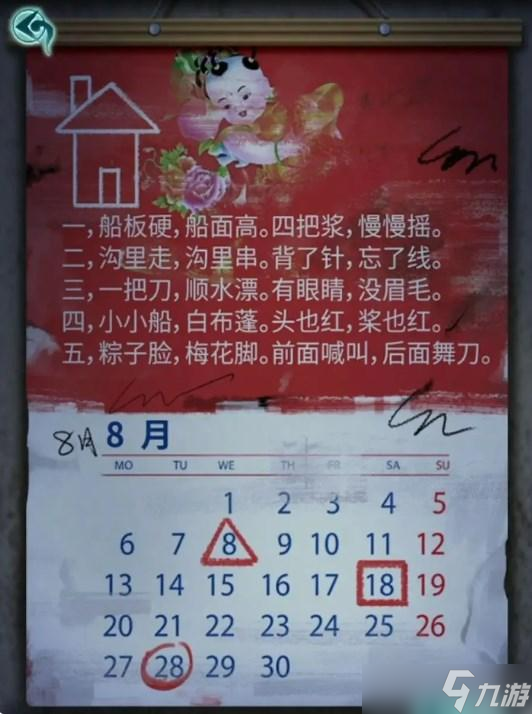 一，船板硬，船面高。四把桨，慢慢摇。
二，沟里走，沟里串。背了针，忘了线。
三，一把刀，顺水漂。有眼睛，没眉毛。
四，小小船，白布蓬。头也红，桨也红。
五，粽子脸，梅花脚。前面喊叫，后面舞刀。
8月 8 月
MO TU WE TH FR SA SU
1 2 3 4 5
6 7 8 9 10 11 12
13 14 15 16 17 18 19
20 21 22 23 24 25 26
27 28 29 30
九游